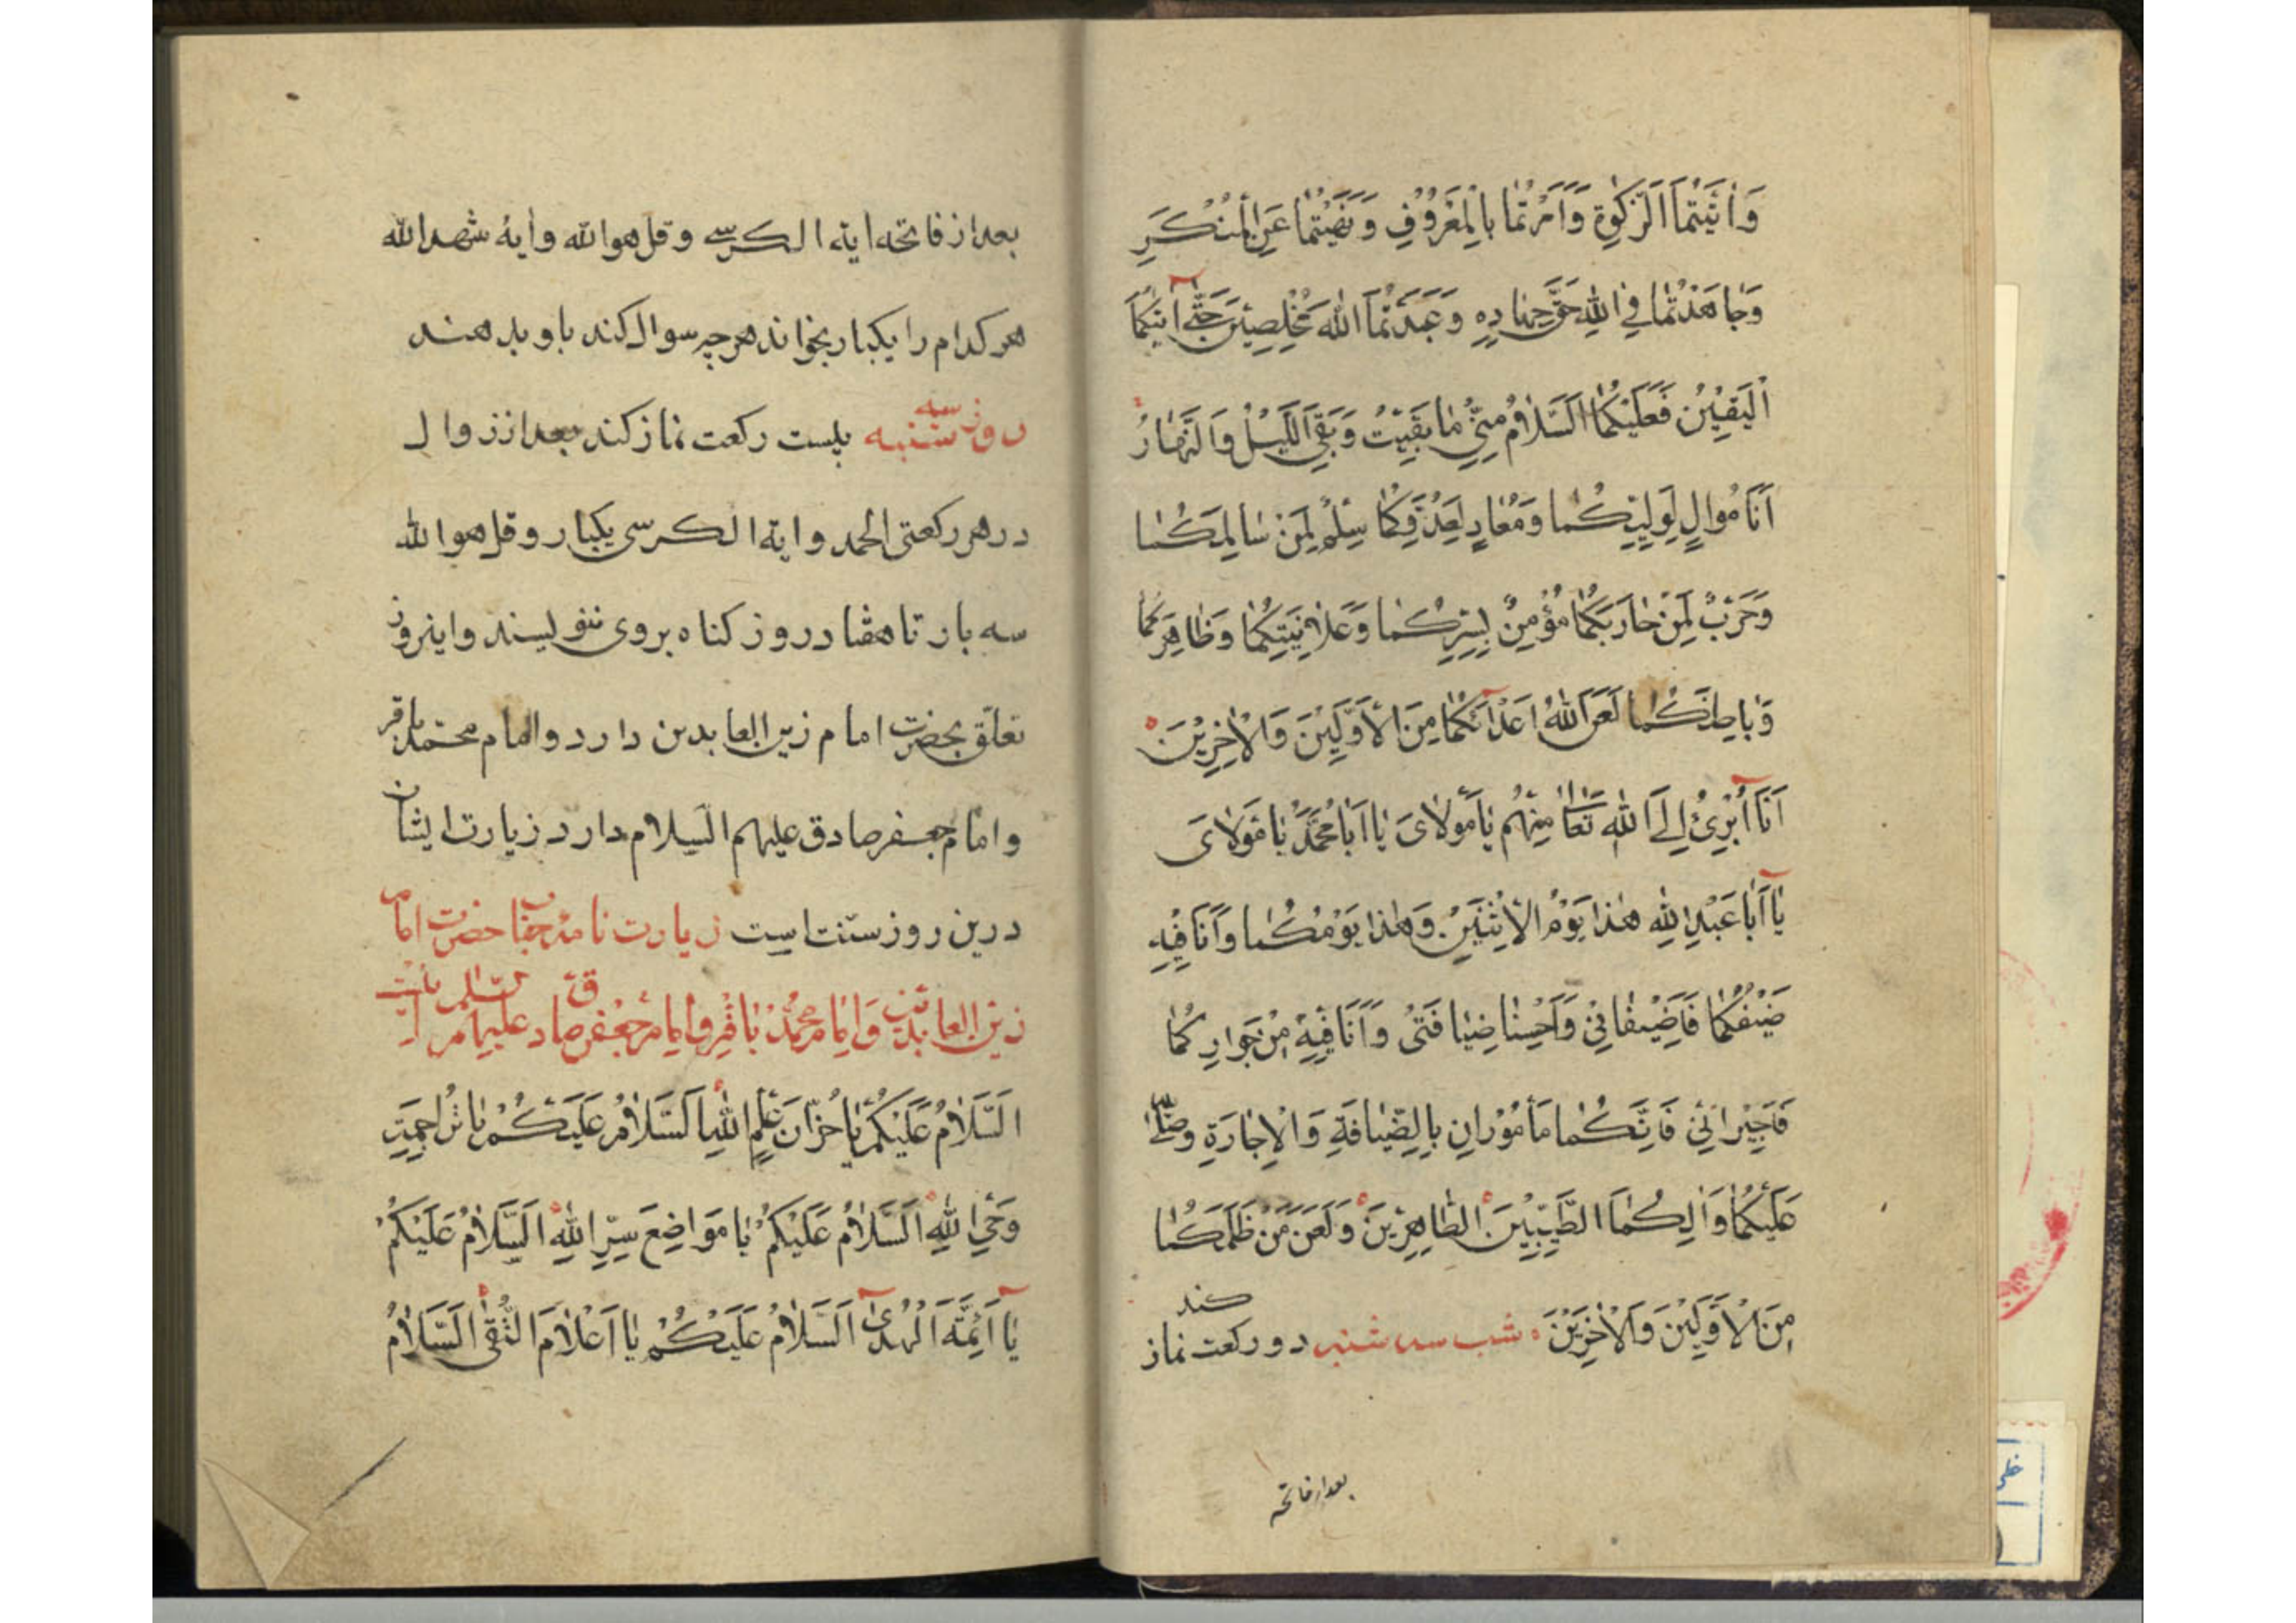 وَاٰتَيْتُمَا الزَّكٰوةِ وَاَمَرْتُمٰا بِالْمَعْرُوُفِ وَنَهَيْتُمٰا عَنِ الْمُنْكَرِ
وَجٰاهَدْتُمٰا فِي اللهِ حَقَّ جِهٰادِهِ وَعَبَدْتُمَا اللهَ مُخْلِصِيْنَ حَتّٰى اَتٰيكُمَا
الْيَقِيْنُ فَعَلَيْكُمَا السَّلٰامُ مِنّىٖ مٰا بَقِيْتُ وَبَقِيَ اللَّيْلُ وَالنَّهٰارُ
اَنَا مُوٰالٍ لِوَلِيِّكُمٰا وَمُعٰادٍ لِعَدُوِّكُمٰا سِلْمٌ لِمَنْ سٰالَمَكُمٰا
وَحَرْبٌ لِمَنْ حٰارَبَكُمٰا مُؤْمِنٌ بِسِرِّكُمٰا وَعَلٰانِيَتِكُمٰا وَظٰاهِرِكُمٰا
وَبٰاطِنِكُمٰا لَعَنَ اللهُ اَعْدٰائَكُمٰا مِنَ الْاَوَّلِيْنَ وَالْاٰخِرِيْنَ
اَنَا اُبْرِئُ اِلَى اللهِ تَعٰالىٰ مِنْهُمْ يٰا مَوْلاٰىَ يٰا اَبٰا مُحَمَّدٍ يٰا مَوْلاٰىَ
يٰا اَبٰا عَبْدِ اللهِ هٰذٰا يَوْمُ الْاِثْنَيْنِ وَهٰذٰا يَوْمُكُمٰا وَاَنَا فِيْهِ
ضَيْفُكُمٰا فَاَضِيْفٰانِىْ وَاَحْسِنٰا ضِيٰافَتىٖ وَاَنَا فِيْهِ مِنْ جِوٰارِكُمٰا
فَاَجِيْرٰانِىْ فَاِنَّكُمٰا مَأْمُوْرٰانِ بِالضِّيٰافَةِ وَالْاِجٰارَةِ وَصَلَّى
عَلَيْكُمٰا وَاٰلِكُمَا الطَّيِّبِيْنَ الطّٰاهِرِيْنَ وَلَعَنَ مَنْ ظَلَمَكُمٰا
مِنَ الْاَوَّلِيْنَ وَالْاٰخِرِيْنَ شب سه شنبه دو ركعت نماز كند
بعد از فاتحه
بعد از فاتحه اية الكرسى و قل هو الله و اية شهد الله
هر كدام را يكبار بخواند هر چه سوال كند باو بدهند
روز سه شنبه بيست ركعت نماز كند بعد از زوال
در هر ركعتى الحمد و اية الكرسى يكبار و قل هو الله
سه بار تا هفتاد روز كناه بروى ننويسند و اين روز
تعلّق بحضرت امام زين العابدين دارد و امام محمّد باقر
و امام جعفر صادق عليهم السلام دارد زيارت ايشان
درين روز سنت است زيارت نامه جناب حضرت امام
زين العابدين وَامام محمّد باقر و امام جعفر صادق عليهم السلام
اَلسَّلاٰمُ عَلَيْكُمْ يٰا خُزّٰانَ عِلْمِ اللهِ اَلسَّلاٰمُ عَلَيْكُمْ يٰا تَرٰاجِمَةَ
وَحْيِ اللهِ اَلسَّلاٰمُ عَلَيْكُمْ يٰا مَوٰاضِعَ سِرِّ اللهِ اَلسَّلاٰمُ عَلَيْكُمْ
يٰا اَئِمَّةَ الْهُدىٰ اَلسَّلاٰمُ عَلَيْكُمْ يٰا اَعْلاٰمَ التُّقىٰ اَلسَّلاٰمُ